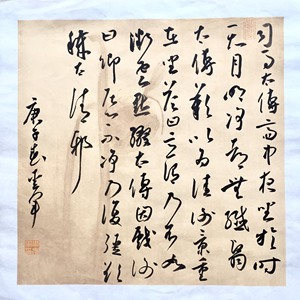 司馬太傅齋中夜坐於時
天月明淨都無纖翳
太傅歎以為佳謝景重
在坐答曰意謂乃不如
微雲點綴太傅因戲謝
曰卿居心不淨乃復強欲
太清邪
庚子春